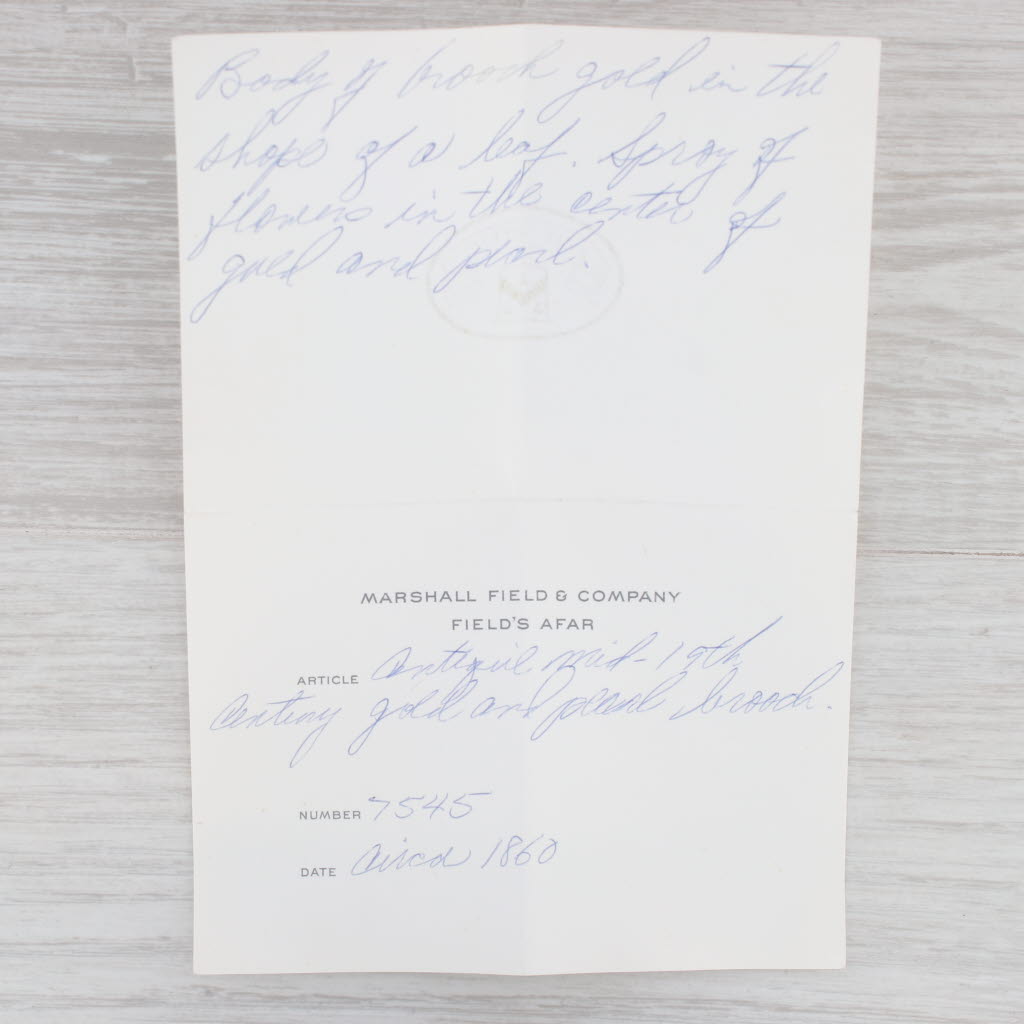 Body of brooch gold in the
shape of a leaf. Spray of
flowers in the center of
gold and pearl.
MARSHALL FIELD & COMPANY
FIELD'S AFAR
ARTICLE Antique mid-19th
Century gold and pearl brooch.
NUMBER 7545
DATE Circa 1860